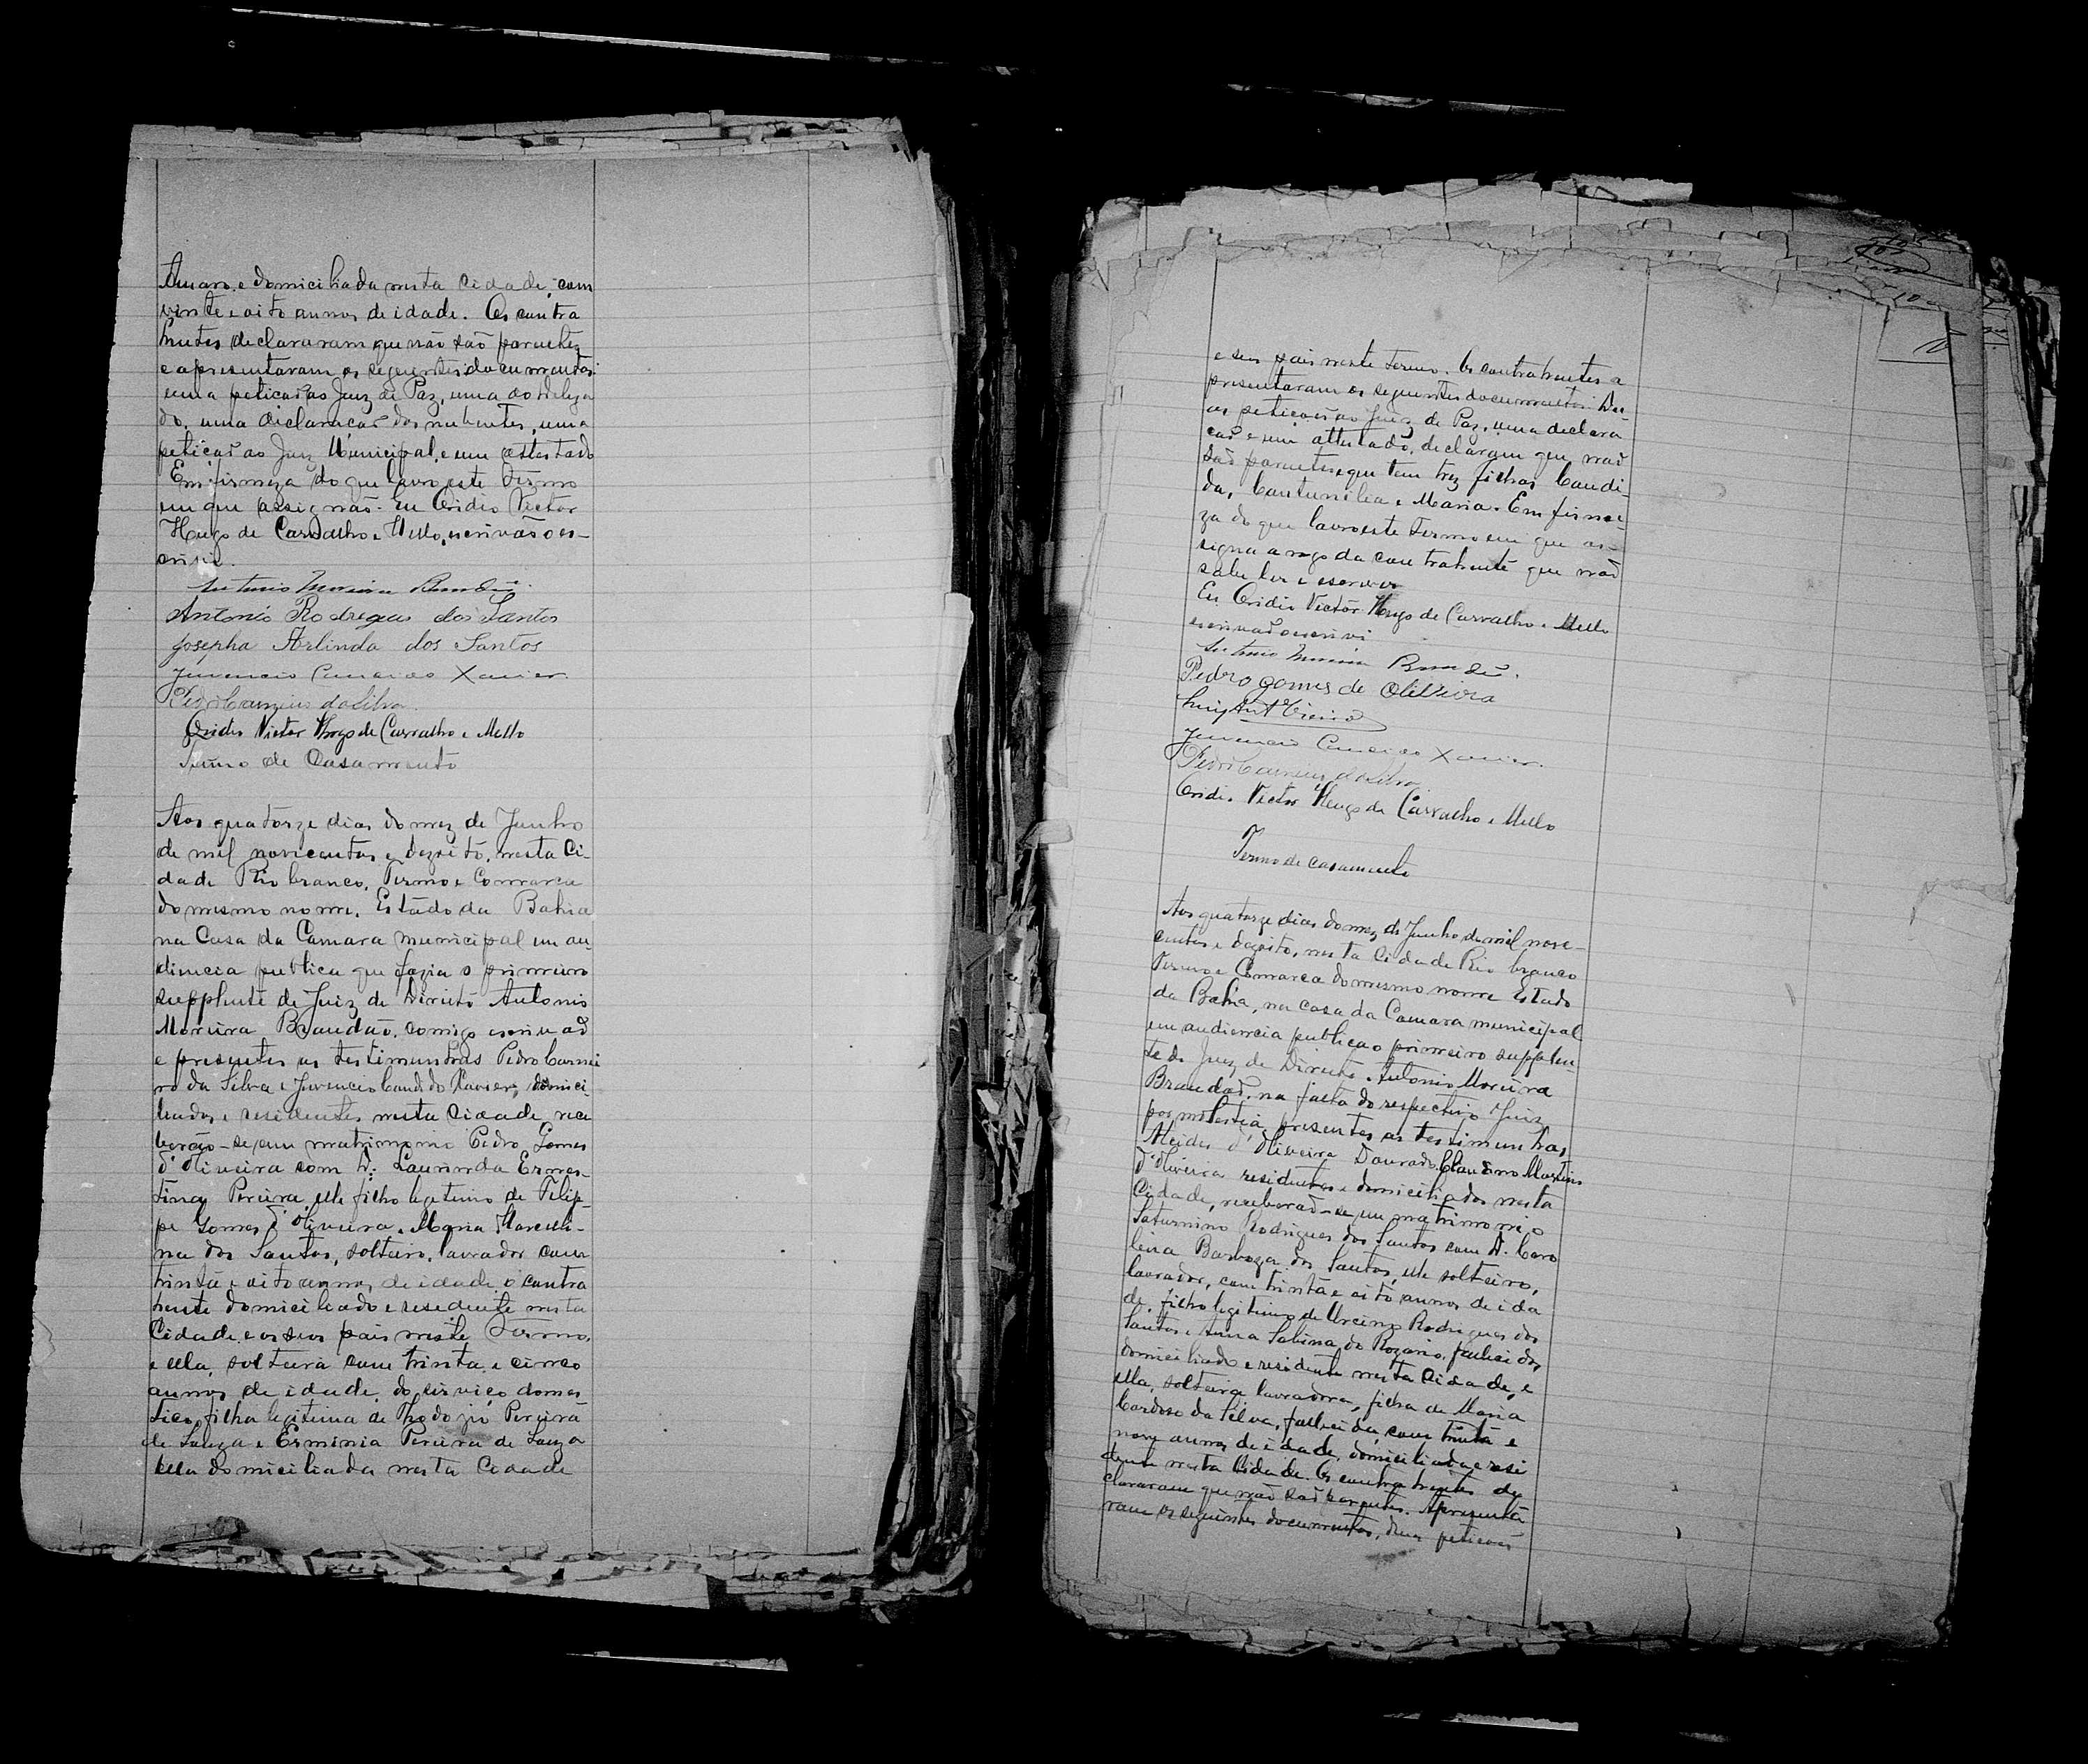 Amaro, e domiciliada nesta cidade, com
vinte e oito annos de idade. Os contra
hentes declararam que não são parentes
e apresentaram os seguintes documentos:
uma petição ao Juiz de Paz, uma ao Delega
do, uma declaração dos nubentes, uma
petição ao Juiz Municipal, e um attestado
Em firmeza do que lavro este Termo
em que assignão. Eu Ovidio Victor
Hugo de Carvalho e Mello, escrivão o es-
crivi.
Antonio Moreira Brandão.
Antonio Rodrigues dos Santos
Josepha Arlinda dos Santos
Juvencio Candido Xavier
Pedro Carneiro da Silva
Ovidio Victor Hugo de Carvalho e Mello
Termo de Casamento
Aos quatorze dias do mez de Junho
de mil novecentos e dezoito, nesta Ci-
dade Rio branco, Termo e Comarca
do mesmo nome, Estado da Bahia
na Casa da Camara municipal em au
diencia publica que fazia o primeiro
supplente de Juiz de Direito Antonio
Moreira Brandão, comigo escrivão
e presentes as testimunhas Pedro Carnei
ro da Silva e Juvencio Candido Xavier, domici
liados e residentes nesta cidade, rece
berão-se em matrimonio Pedro Gomes
d'Oliveira com D. Laurinda Ernes-
tina Pereira, elle filho legitimo de Filip-
pe Gomes d'Oliveira e Maria Marcelli-
na dos Santos, solteiro, lavrador com
trinta e oito annos de idade, o contra
hente domiciliado e residente nesta
Cidade e os seus pais neste Termo,
e ella, solteira com trinta e cinco
annos de idade, do serviço domes
tico, filha legitima de Thodozio Pereira
de Souza e Erminia Pereira de Souza
ella domiciliada nesta Cidade
e seus pais neste Termo. Os contrahentes a
presentaram os seguintes documentos: Du-
as petições ao Juiz de Paz, uma declara
ção e um attestado, declaram que não
são parentes e que tem trez filhas Candi-
da, Cantunilia e Maria. Em firme-
za do que lavro este Termo em que as-
signa a rogo da contrahente que não
sabe ler e escrever
Eu Ovidio Victor Hugo de Carvalho e Mello
escrivão o escrivi
Antonio Moreira Brandão.
Pedro gomes de Oliveira
Luiz Ant Vieira
Juvencio Candido Xavier.
Pedro Carneiro da Silva
Ovidio Victor Hugo de Carvalho e Mello
Termo de casamento
Aos quatorze dias do mez de Junho de mil nove-
centos e dezoito, nesta Cidade Rio branco
Termo e Comarca do mesmo nome Estado
da Bahia, na casa da Camara municipal
em audiencia publica o primeiro supplen
te do Juiz de Direito Antonio Moreira
Brandão, na falta do respectivo Juiz
por molestia, presentes as testimunhas
Alcides d'Oliveira Dourado, Claudino Martins
d'Oliveira residentes e domiciliados nesta
Cidade, receberão-se em matrimonio
Saturnino Rodrigues dos Santos com D. Caro
lina Barboza dos Santos, elle solteiro,
lavrador, com trinta e oito annos de ida
de, filho legitimo de Urcino Rodrigues dos
Santos e Anna Sabina do Rozario, fallecidos,
domiciliado e residente nesta Cidade, e
ella, solteira lavradora, filha de Maria
Cardoso da Silva, fallecida, com trinta e
nove annos de idade, domiciliada e resi
dente nesta Cidade. Os contrahentes de
clararam que não são parentes. Apresenta
ram os seguintes documentos, duas petições